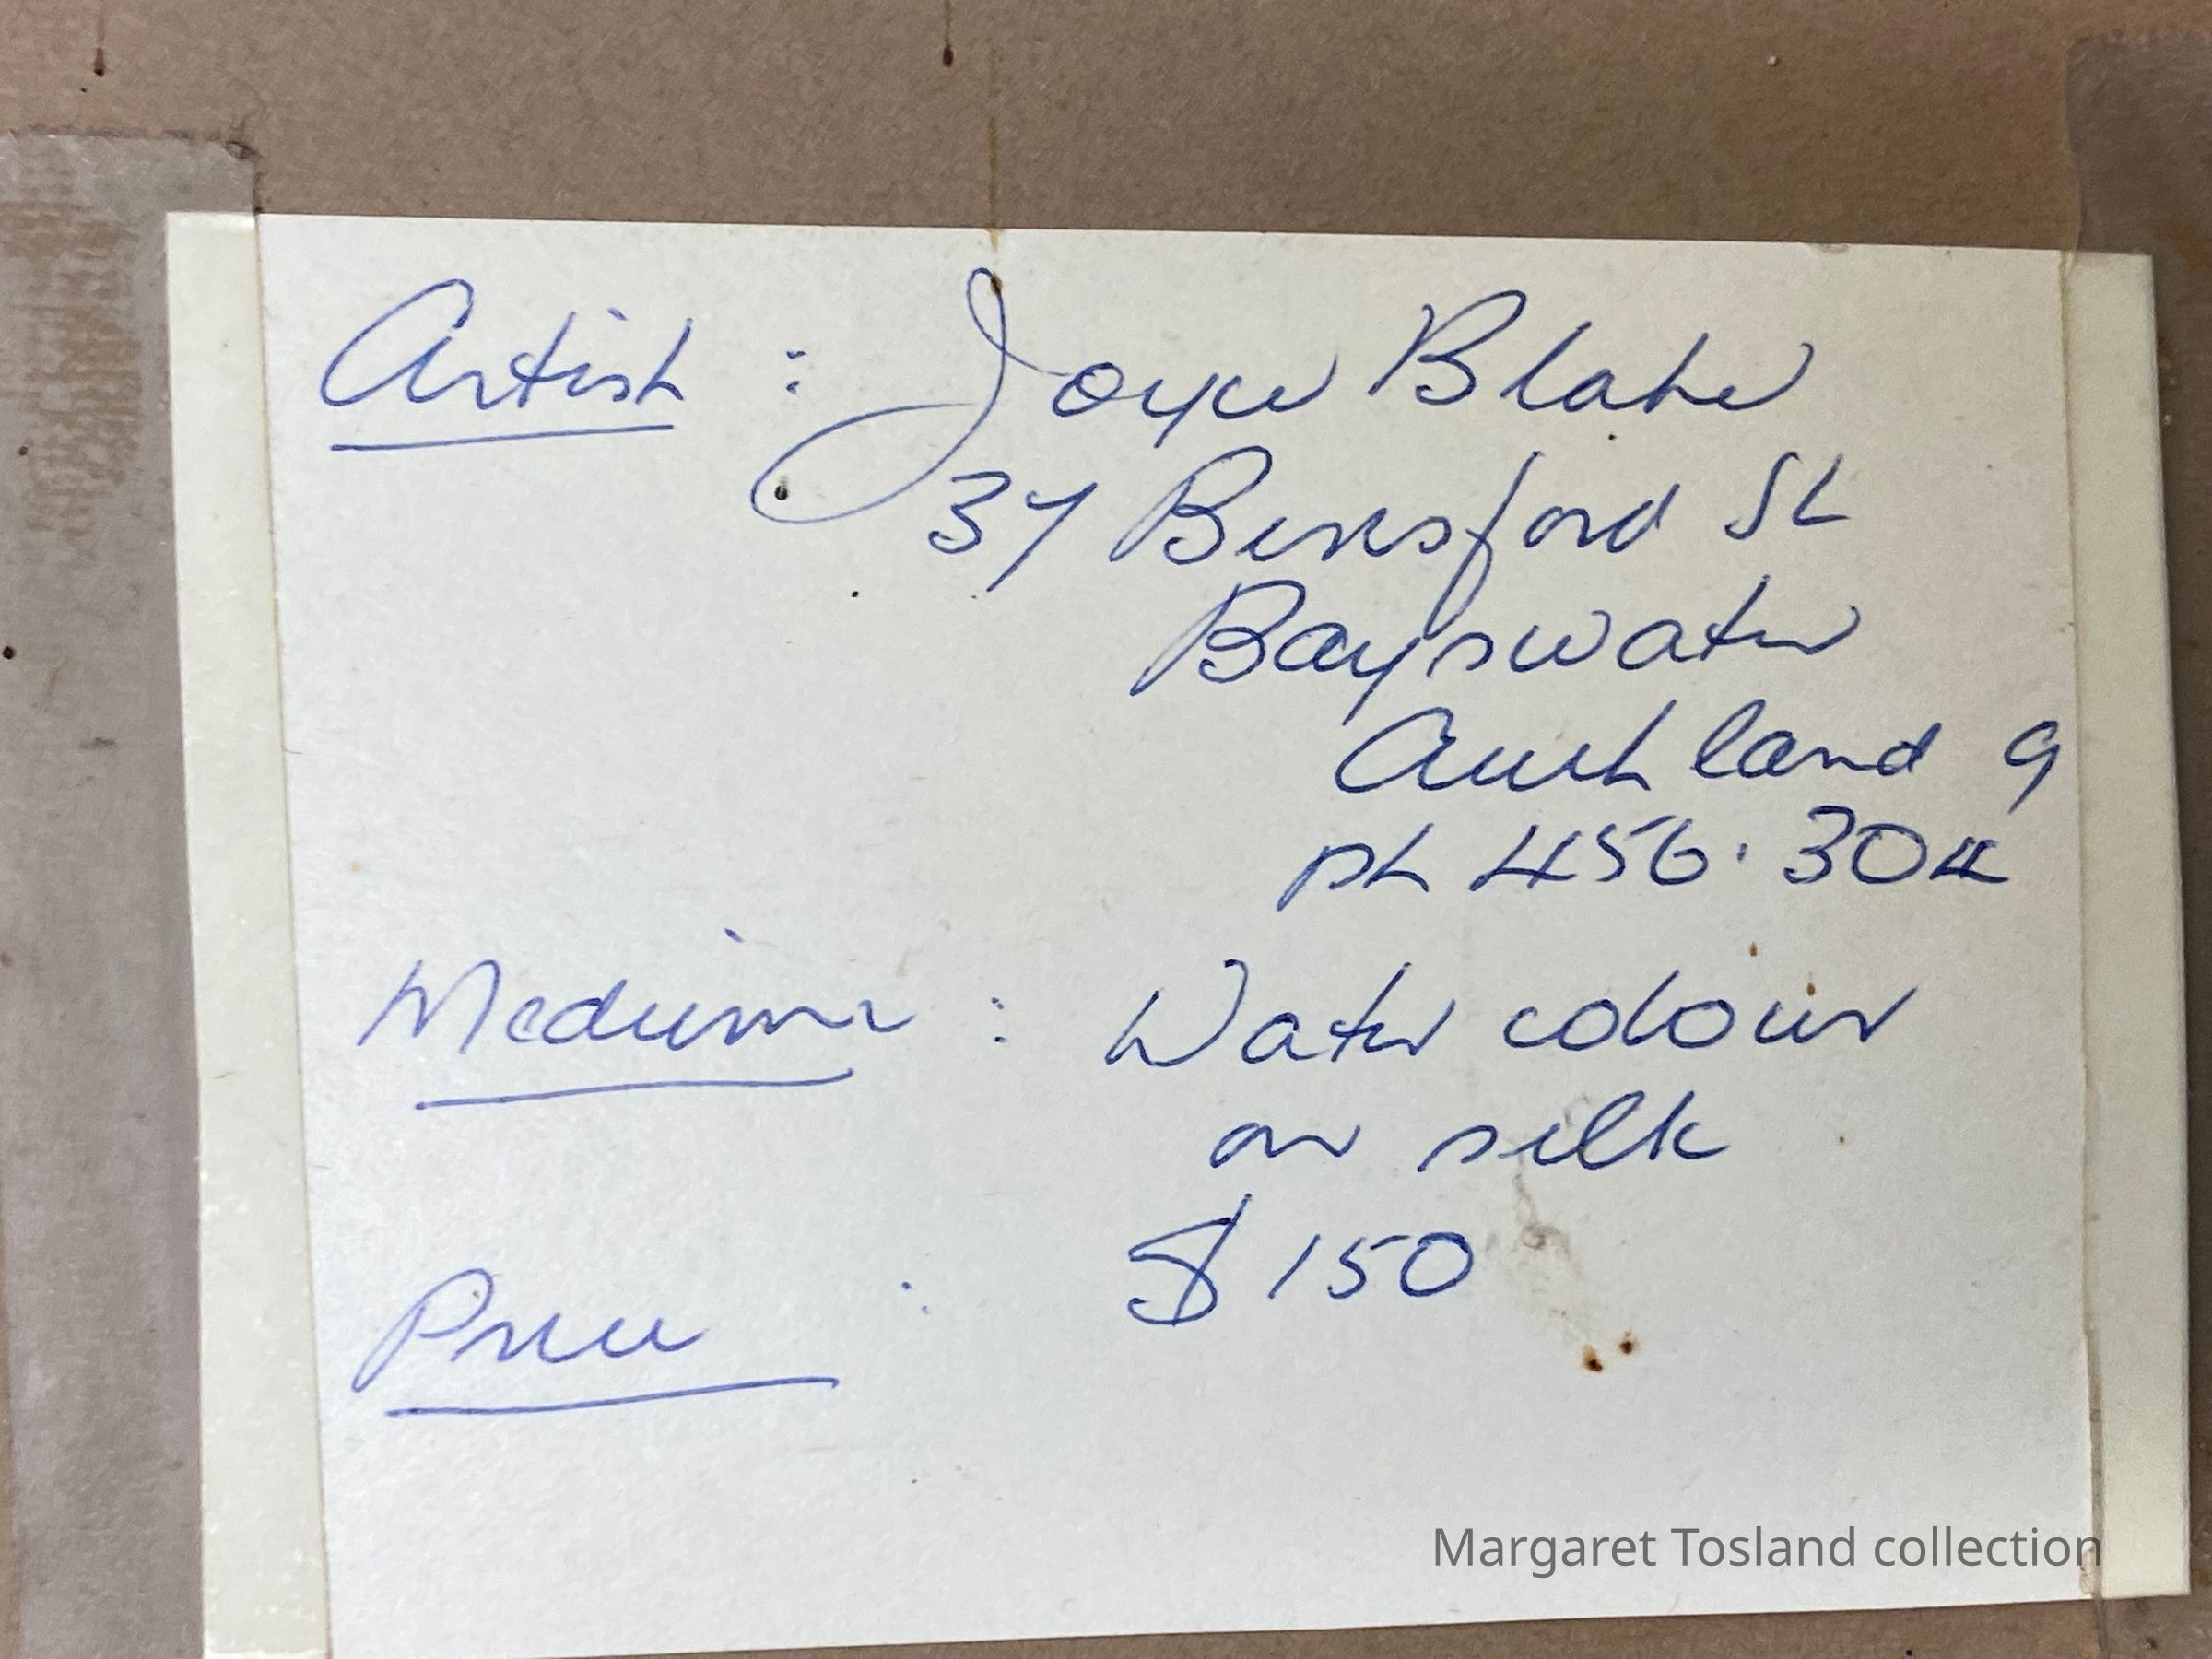 Artist : Joyce Blake
37 Beresford St
Bayswater
Auckland 9
ph 456·304
Medium : Water colour
on silk
Price : $150
Margaret Tosland collection